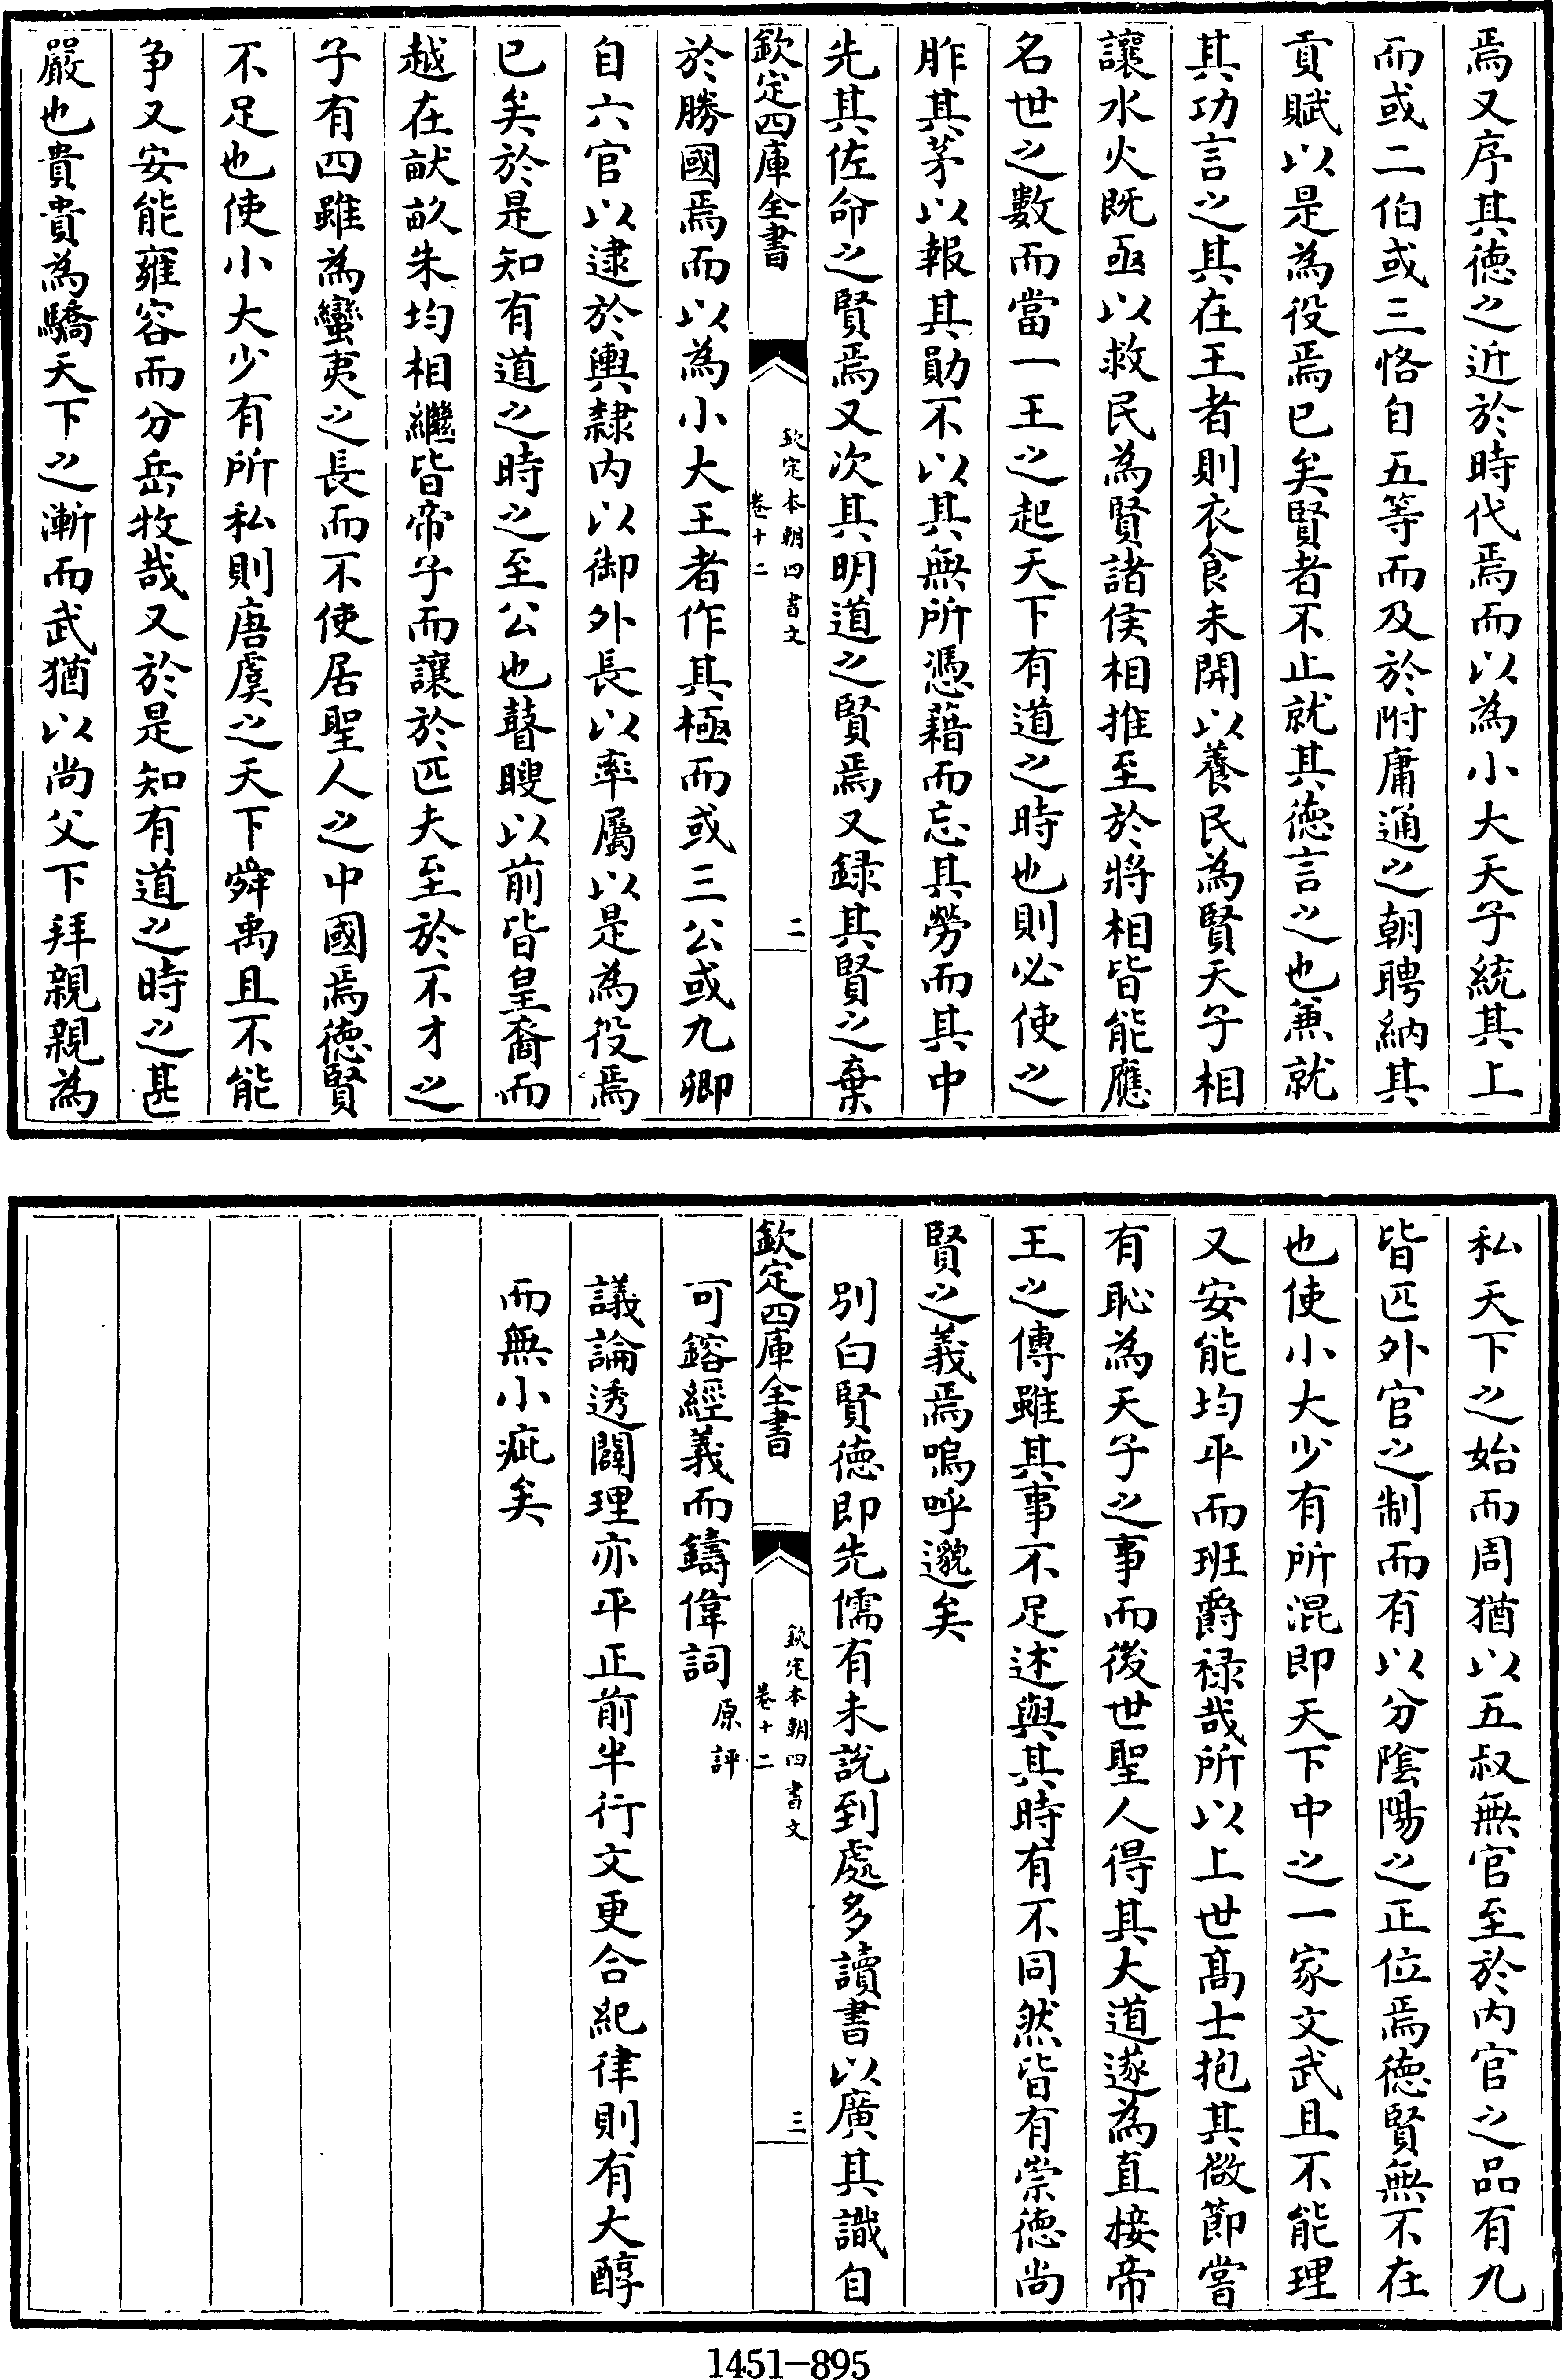 焉又序其德之近於時代焉而以為小大天子統其上
而或二伯或三恪自五等而及於附庸通之朝聘納其
貢賦以是為役焉已矣賢者不止就其德言之也兼就
其功言之其在王者則衣食未開以養民為賢天子相
讓水火既亟以救民為賢諸侯相推至於將相皆能應
名世之數而當一王之起天下有道之時也則必使之
胙其茅以報其勛不以其無所憑藉而忘其勞而其中
先其佐命之賢焉又次其明道之賢焉又録其賢之棄
欽定四庫全書
欽定本朝四書文
卷十二
二
於勝國焉而以為小大王者作其極而或三公或九卿
自六官以逮於輿隸内以御外長以率屬以是為役焉
已矣於是知有道之時之至公也瞽瞍以前皆皇裔而
越在畎畝朱均相繼皆帝子而讓於匹夫至於不才之
子有四雖為蠻夷之長而不使居聖人之中國焉德賢
不足也使小大少有所私則唐虞之天下舜禹且不能
争又安能雍容而分岳牧哉又於是知有道之時之甚
嚴也貴貴為驕天下之漸而武猶以尚父下拜親親為
私天下之始而周猶以五叔無官至於内官之品有九
皆匹外官之制而有以分陰陽之正位焉德賢無不在
也使小大少有所混即天下中之一家文武且不能理
又安能均平而班爵禄哉所以上世髙士抱其微節嘗
有恥為天子之事而後世聖人得其大道遂為直接帝
王之傳雖其事不足述與其時有不同然皆有崇德尚
賢之義焉嗚呼邈矣
别白賢德即先儒有未說到處多讀書以廣其識自
欽定四庫全書
欽定本朝四書文
卷十二
三
可鎔經義而鑄偉詞原評
議論透闢理亦平正前半行文更合紀律則有大醇
而無小疵矣
1451-895